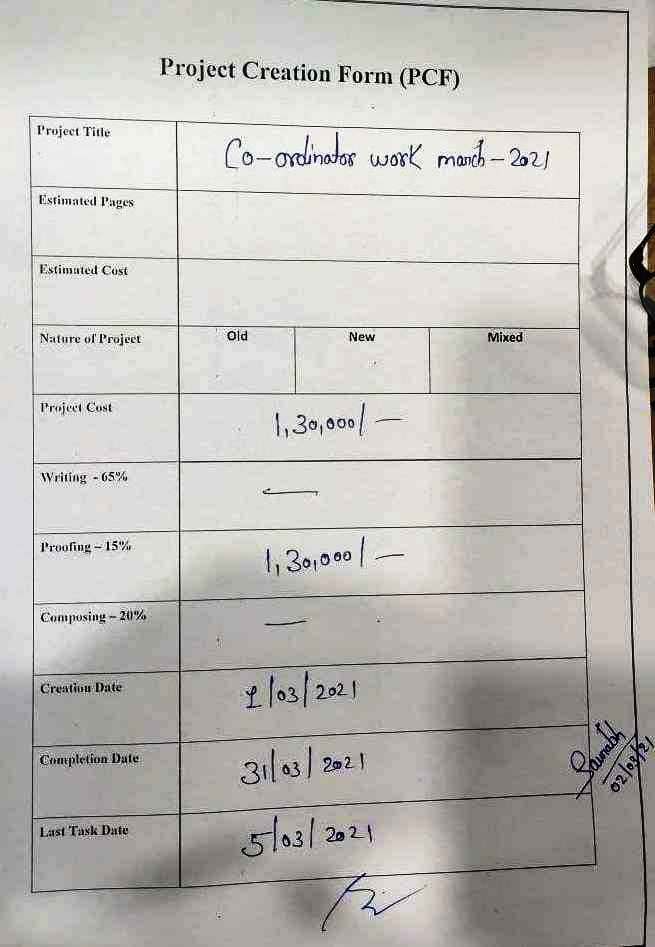 Project Creation Form (PCF)
Project Title
Co-ordinator work march - 2021
Estimated Pages
Estimated Cost
Nature of Project Old New Mixed
Project Cost 1,30,000/-
Writing - 65% —
Proofing – 15% 1,30,000/-
Composing – 20% —
Creation Date 1/03/2021
Completion Date 31/03/2021
Last Task Date 5/03/2021
02/03/21